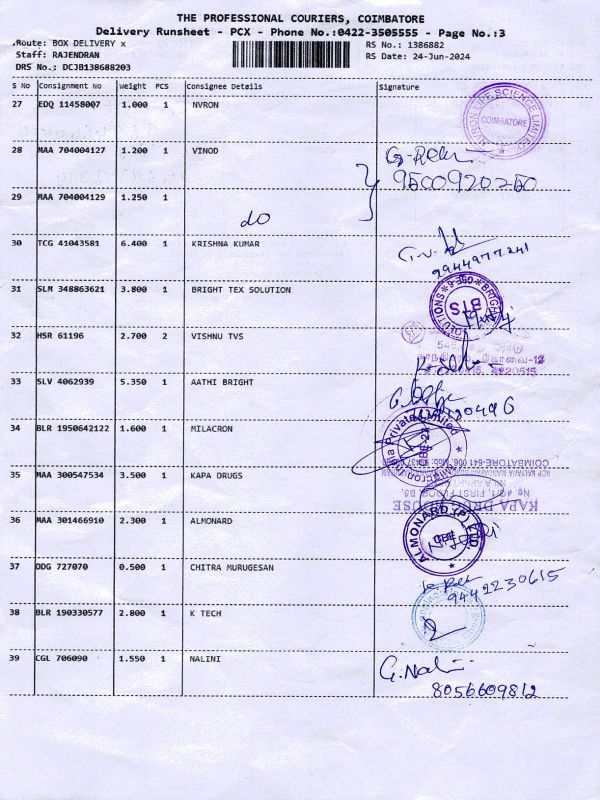 THE PROFESSIONAL COURIERS, COIMBATORE
Delivery Runsheet - PCX - Phone No.:0422-3505555 - Page No.:3
Route: BOX DELIVERY x RS No.: 1386882
Staff: RAJENDRAN RS Date: 24-Jun-2024
DRS No.: DCJB138688203
S No Consignment No Weight PCS Consignee Details Signature
27 EDQ 11458007 1.000 1 NVRON
NVRON LIFE SCIENCE LIMITED
COIMBATORE
28 MAA 704004127 1.200 1 VINOD
9500920250
29 MAA 704004129 1.250 1
do
30 TCG 41043581 6.400 1 KRISHNA KUMAR
2944977241
31 SLM 348863621 3.800 1 BRIGHT TEX SOLUTION
BTS
32 HSR 61196 2.700 2 VISHNU TVS
33 SLV 4062939 5.350 1 AATHI BRIGHT
34 BLR 1950642122 1.600 1 MILACRON
35 MAA 300547534 3.500 1 KAPA DRUGS
36 MAA 301466910 2.300 1 ALMONARD
ALMONARD (P) LTD.
37 DDG 727070 0.500 1 CHITRA MURUGESAN
9442230615
38 BLR 190330577 2.800 1 K TECH
39 CGL 706090 1.550 1 NALINI
G. Nalini
8056609812